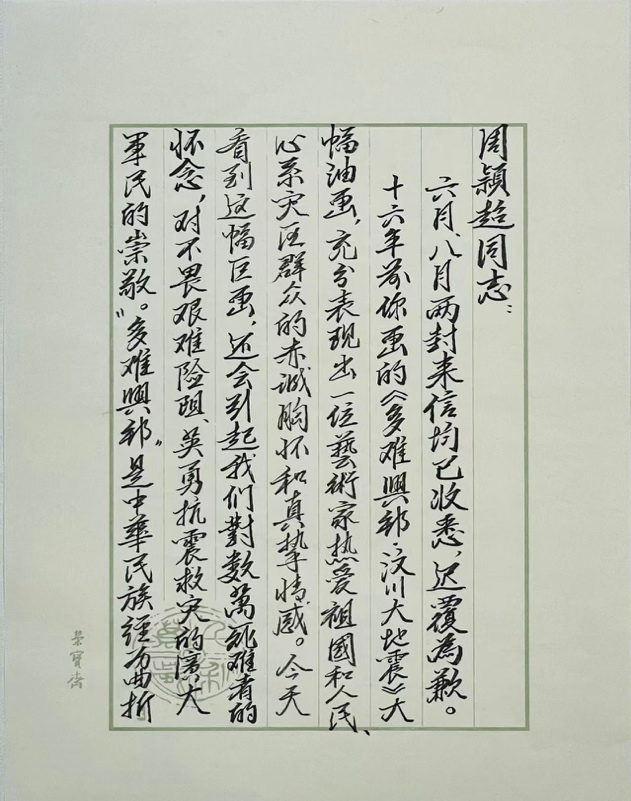 周颖超同志：
六月、八月两封来信均已收悉，迟覆为歉。
十六年前你画的《多难興邦·汶川大地震》大
幅油画，充分表现出一位藝術家热爱祖國和人民、
心系灾区群众的赤诚胸怀和真挚情感。今天
看到这幅巨画，还会引起我们對数萬死难者的
怀念，对不畏艰难险阻、英勇抗震救灾的广大
軍民的崇敬。“多难興邦”是中華民族經历曲折
榮寶齋